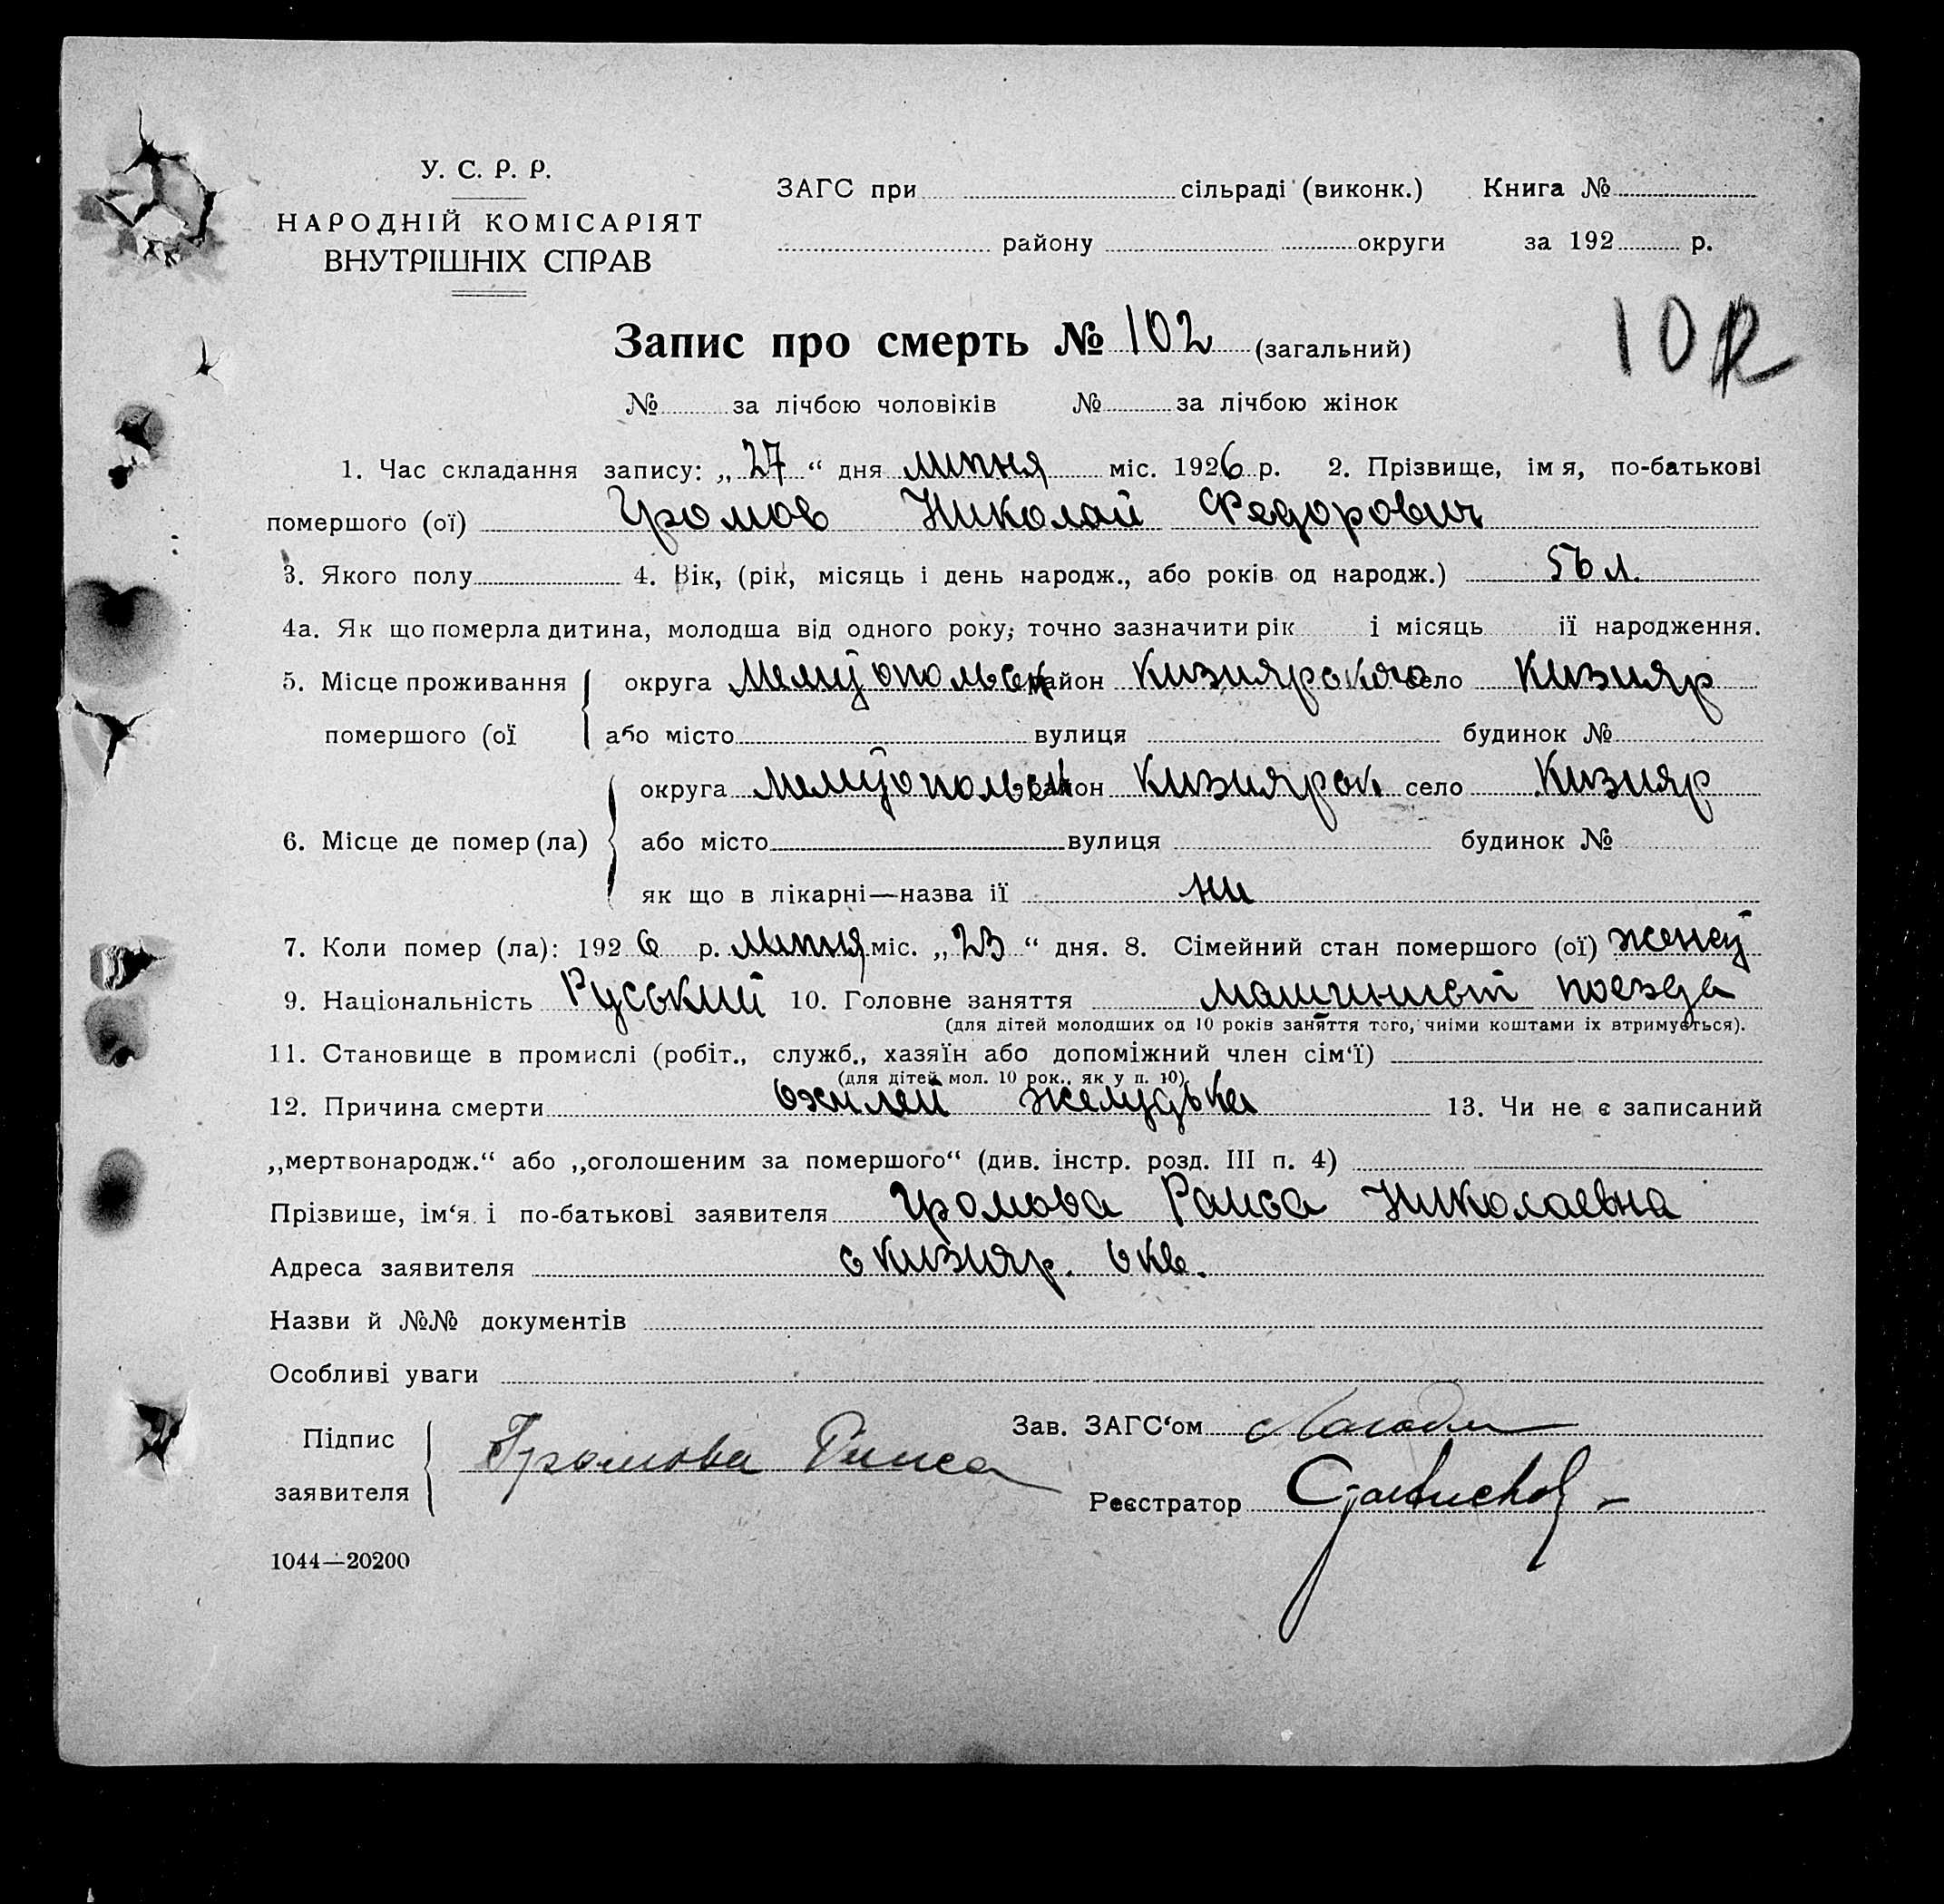 У. С. Р. Р.
НАРОДНІЙ КОМІСАРІЯТ
ВНУТРІШНІХ СПРАВ
ЗАГС при сільраді (виконк.) Книга №
району округи за 192 р.
Запис про смерть № 102 (загальний)
102
№ за лічбою чоловіків № за лічбою жінок
1. Час складання запису: „27“ дня липня міс. 1926 р. 2. Прізвище, імя, по-батькові
помершого (ої) Громов Николай Федорович
3. Якого полу 4. Вік, (рік, місяць і день народж., або років од народж.) 56 л.
4а. Як що померла дитина, молодша від одного року, точно зазначити рік і місяць її народження.
5. Місце проживання округа Мелітопольск район Кизиярського село Кизияр
помершого (ої або місто вулиця будинок №
округа Мелітопольск район Кизиярск село Кизияр
6. Місце де помер (ла) або місто вулиця будинок №
як що в лікарні—назва ії ни
7. Коли помер (ла): 1926 р. липня міс. „23“ дня. 8. Сімейний стан помершого (ої)
9. Національність Руський 10. Головне заняття машинист поезда
(для дітей молодших од 10 років заняття того, чиїми коштами їх втримується).
11. Становище в промислі (робіт., служб., хазяїн або допоміжний член сім‘ї)
(для дітей мол. 10 рок., як у п. 10)
12. Причина смерти желудька 13. Чи не є записаний
„мертвонародж.“ або „оголошеним за помершого“ (див. інстр. розд. III п. 4)
Прізвише, ім‘я і по-батькові заявителя Громова Раиса Николаевна
Адреса заявителя с Кизияр. 6 кв.
Назви й №№ документів
Особливі уваги
Підпис Громова Раиса Зав. ЗАГС‘ом
заявителя Реєстратор
1044—20200